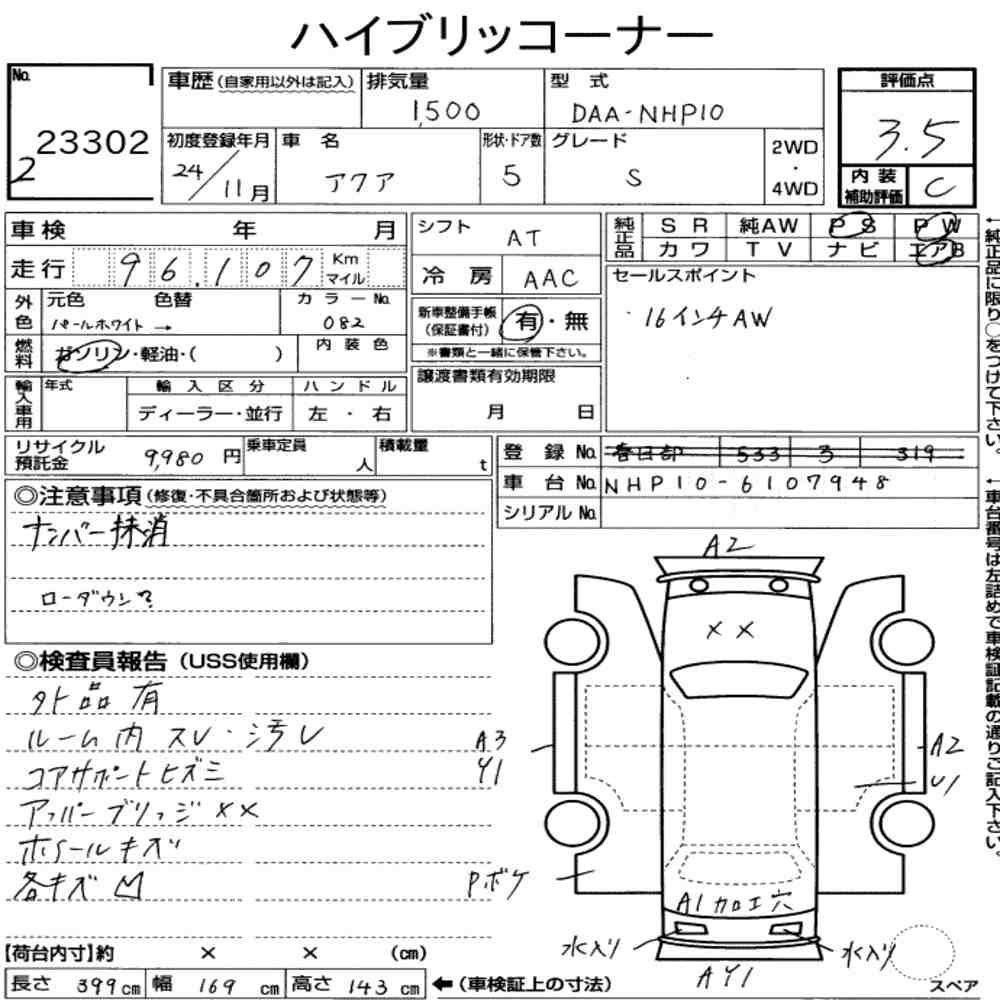 ハイブリッコーナー
No. 23302
2
車歴(自家用以外は記入) 排気量 1,500 型式 DAA-NHP10
評価点 3.5
内装補助評価 C
初度登録年月 24/11月 車名 アクア 形状・ドア数 5 グレード S 2WD・4WD
車検 年 月
走行 96,107 Km マイル
外色 元色 パールホワイト → 色替 カラーNo. 082
燃料 ガソリン・軽油・( ) 内装色
輸入車用 年式 輸入区分 ディーラー・並行 ハンドル 左・右
シフト AT
冷房 AAC
新車整備手帳(保証書付) 有・無
※書類と一緒に保管下さい。
譲渡書類有効期限
月 日
純正品 SR 純AW PS PW
カワ TV ナビ エアB
セールスポイント
・16インチAW
リサイクル預託金 9,980円 乗車定員 人 積載量 t
登録No. 春日部 533 う 319
車台No. NHP10-6107948
シリアルNo.
◎注意事項(修復・不具合箇所および状態等)
ナンバー抹消
ローダウン?
◎検査員報告(USS使用欄)
外品有
ルーム内スレ・汚レ
コアサポートヒズミ
アッパーブリッジ××
ホイールキズ
各キズ凹
A2
××
A3
Y1
A2
U1
Pボケ
A1加工穴
水入リ
水入リ
AY1
スペア
【荷台内寸】約 × × (cm)
長さ 399cm 幅 169cm 高さ 143cm ←(車検証上の寸法)
←純正品に限り○をつけて下さい。
←車台番号は左詰めで車検証記載の通りご記入下さい。